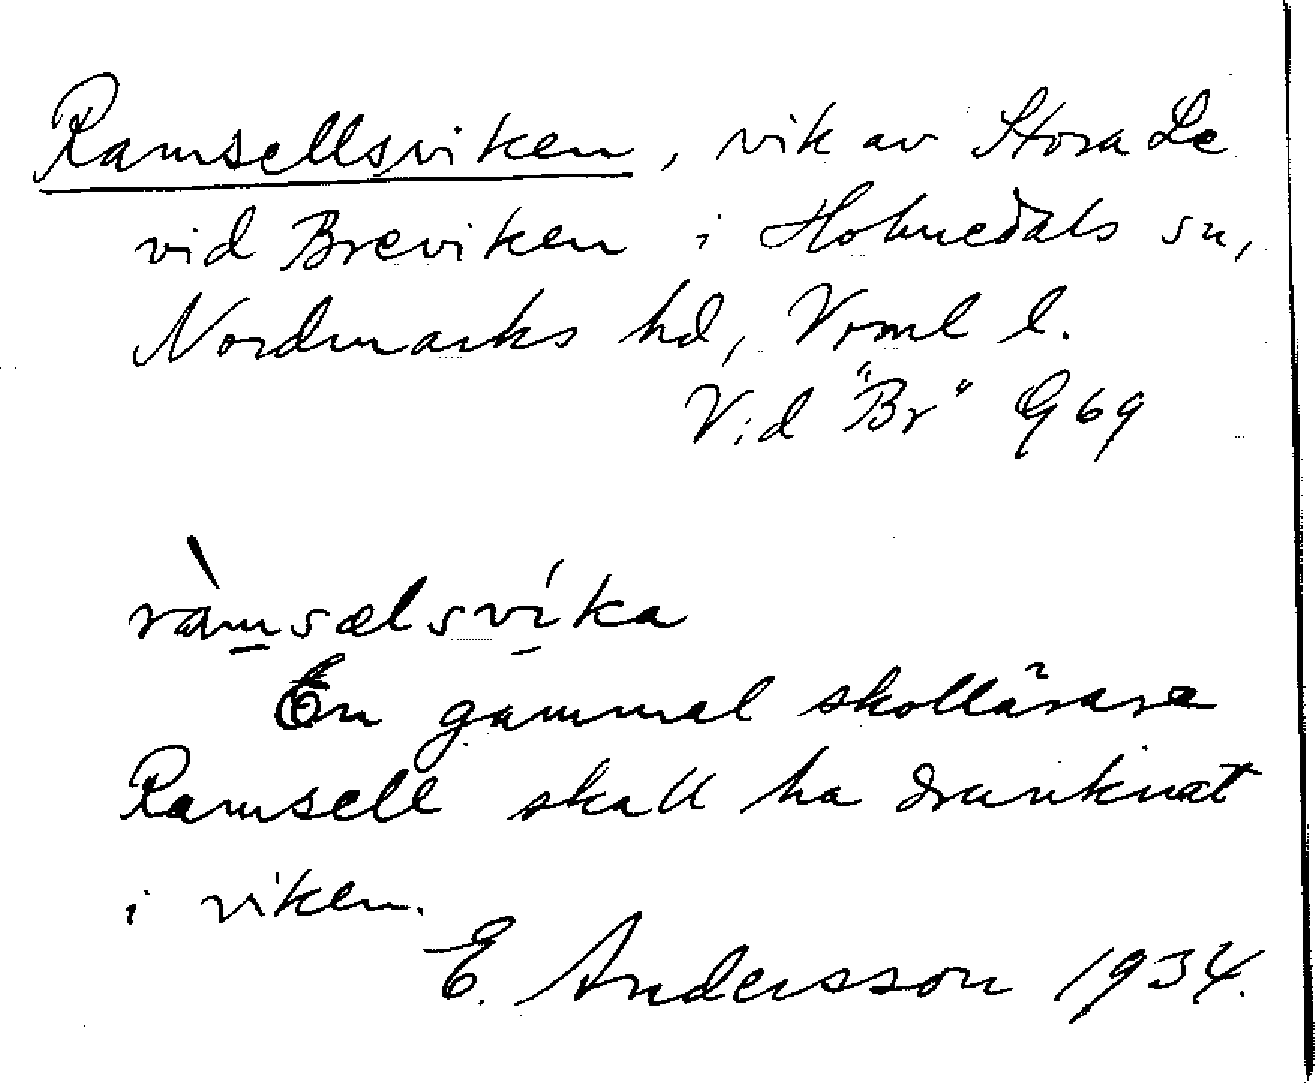 Ramsellsviken, vik av Stora Le
vid Breviken i Holmedals sn,
Nordmarks hd, Vrml l.
Vid "Br" G 69
ràmsælsvíka
En gammal skollärare
Ramsell skall ha drunknat
i viken.
E. Andersson 1934.